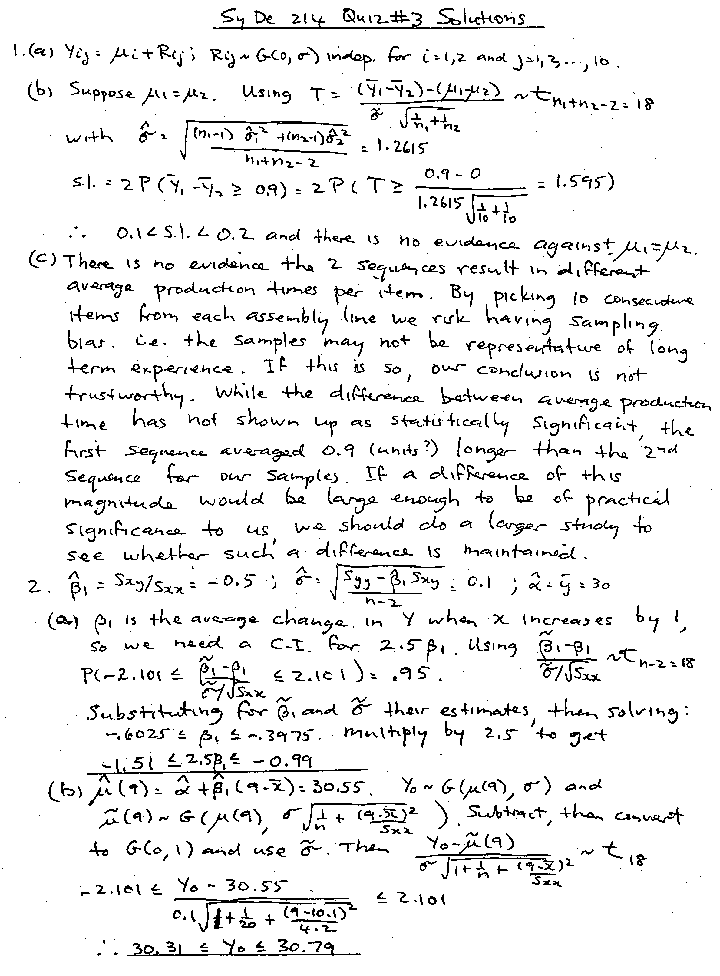 SyDe 214 Quiz #3 Solutions
1. (a) Yij = μi + Rij ; Rij ~ G(0, σ) indep. for i=1,2 and j=1,2,...,10.
(b) Suppose μ1 = μ2. Using T = ((Ȳ1-Ȳ2)-(μ1-μ2)) / (σ̃ √(1/n1 + 1/n2)) ~ t n1+n2-2 = 18
with σ̂ = √(((n1-1) σ̂1² + (n2-1) σ̂2²) / (n1+n2-2)) = 1.2615
s.l. = 2P(Ȳ1 - Ȳ2 ≥ 0.9) = 2P(T ≥ (0.9 - 0) / (1.2615 √(1/10 + 1/10)) = 1.595)
∴ 0.1 < s.l. < 0.2 and there is no evidence against μ1 = μ2.
(c) There is no evidence the 2 sequences result in different
average production times per item. By picking 10 consecutive
items from each assembly line we risk having sampling
bias. i.e. the samples may not be representative of long
term experience. If this is so, our conclusion is not
trustworthy. While the difference between average production
time has not shown up as statistically significant, the
first sequence averaged 0.9 (units?) longer than the 2nd
sequence for our samples. If a difference of this
magnitude would be large enough to be of practical
significance to us, we should do a larger study to
see whether such a difference is maintained.
2. β̂1 = Sxy/Sxx = -0.5 ; σ̂ = √((Syy - β̂1 Sxy) / (n-2)) = 0.1 ; α̂ = ȳ = 30
(a) β1 is the average change in Y when x increases by 1,
so we need a C.I. for 2.5β1. Using (β̃1 - β1) / (σ̃/√Sxx) ~ t n-2 = 18
P(-2.101 ≤ (β̃1 - β1) / (σ̃/√Sxx) ≤ 2.101) = .95.
Substituting for β̃1 and σ̃ their estimates, then solving:
-.6025 ≤ β1 ≤ -.3975. multiply by 2.5 to get
-1.51 ≤ 2.5β1 ≤ -0.99
(b) μ̂(9) = α̂ + β̂1(9-x̄) = 30.55. Y0 ~ G(μ(9), σ) and
μ̃(9) ~ G(μ(9), σ √(1/n + (9-x̄)²/Sxx)). Subtract, then convert
to G(0,1) and use σ̃. Then (Y0 - μ̃(9)) / (σ̃ √(1 + 1/n + (9-x̄)²/Sxx)) ~ t 18
-2.101 ≤ (Y0 - 30.55) / (0.1 √(1 + 1/20 + (9-10.1)²/4.2)) ≤ 2.101
∴ 30.31 ≤ Y0 ≤ 30.79